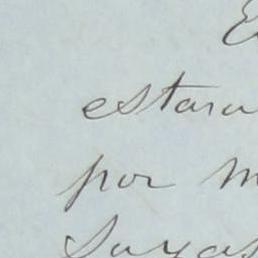 E
estara
por m
Suyas